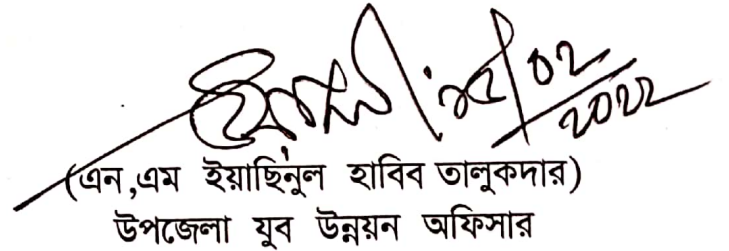 ১৫/০২/২০২২
(এন,এম ইয়াছিনুল হাবিব তালুকদার)
উপজেলা যুব উন্নয়ন অফিসার